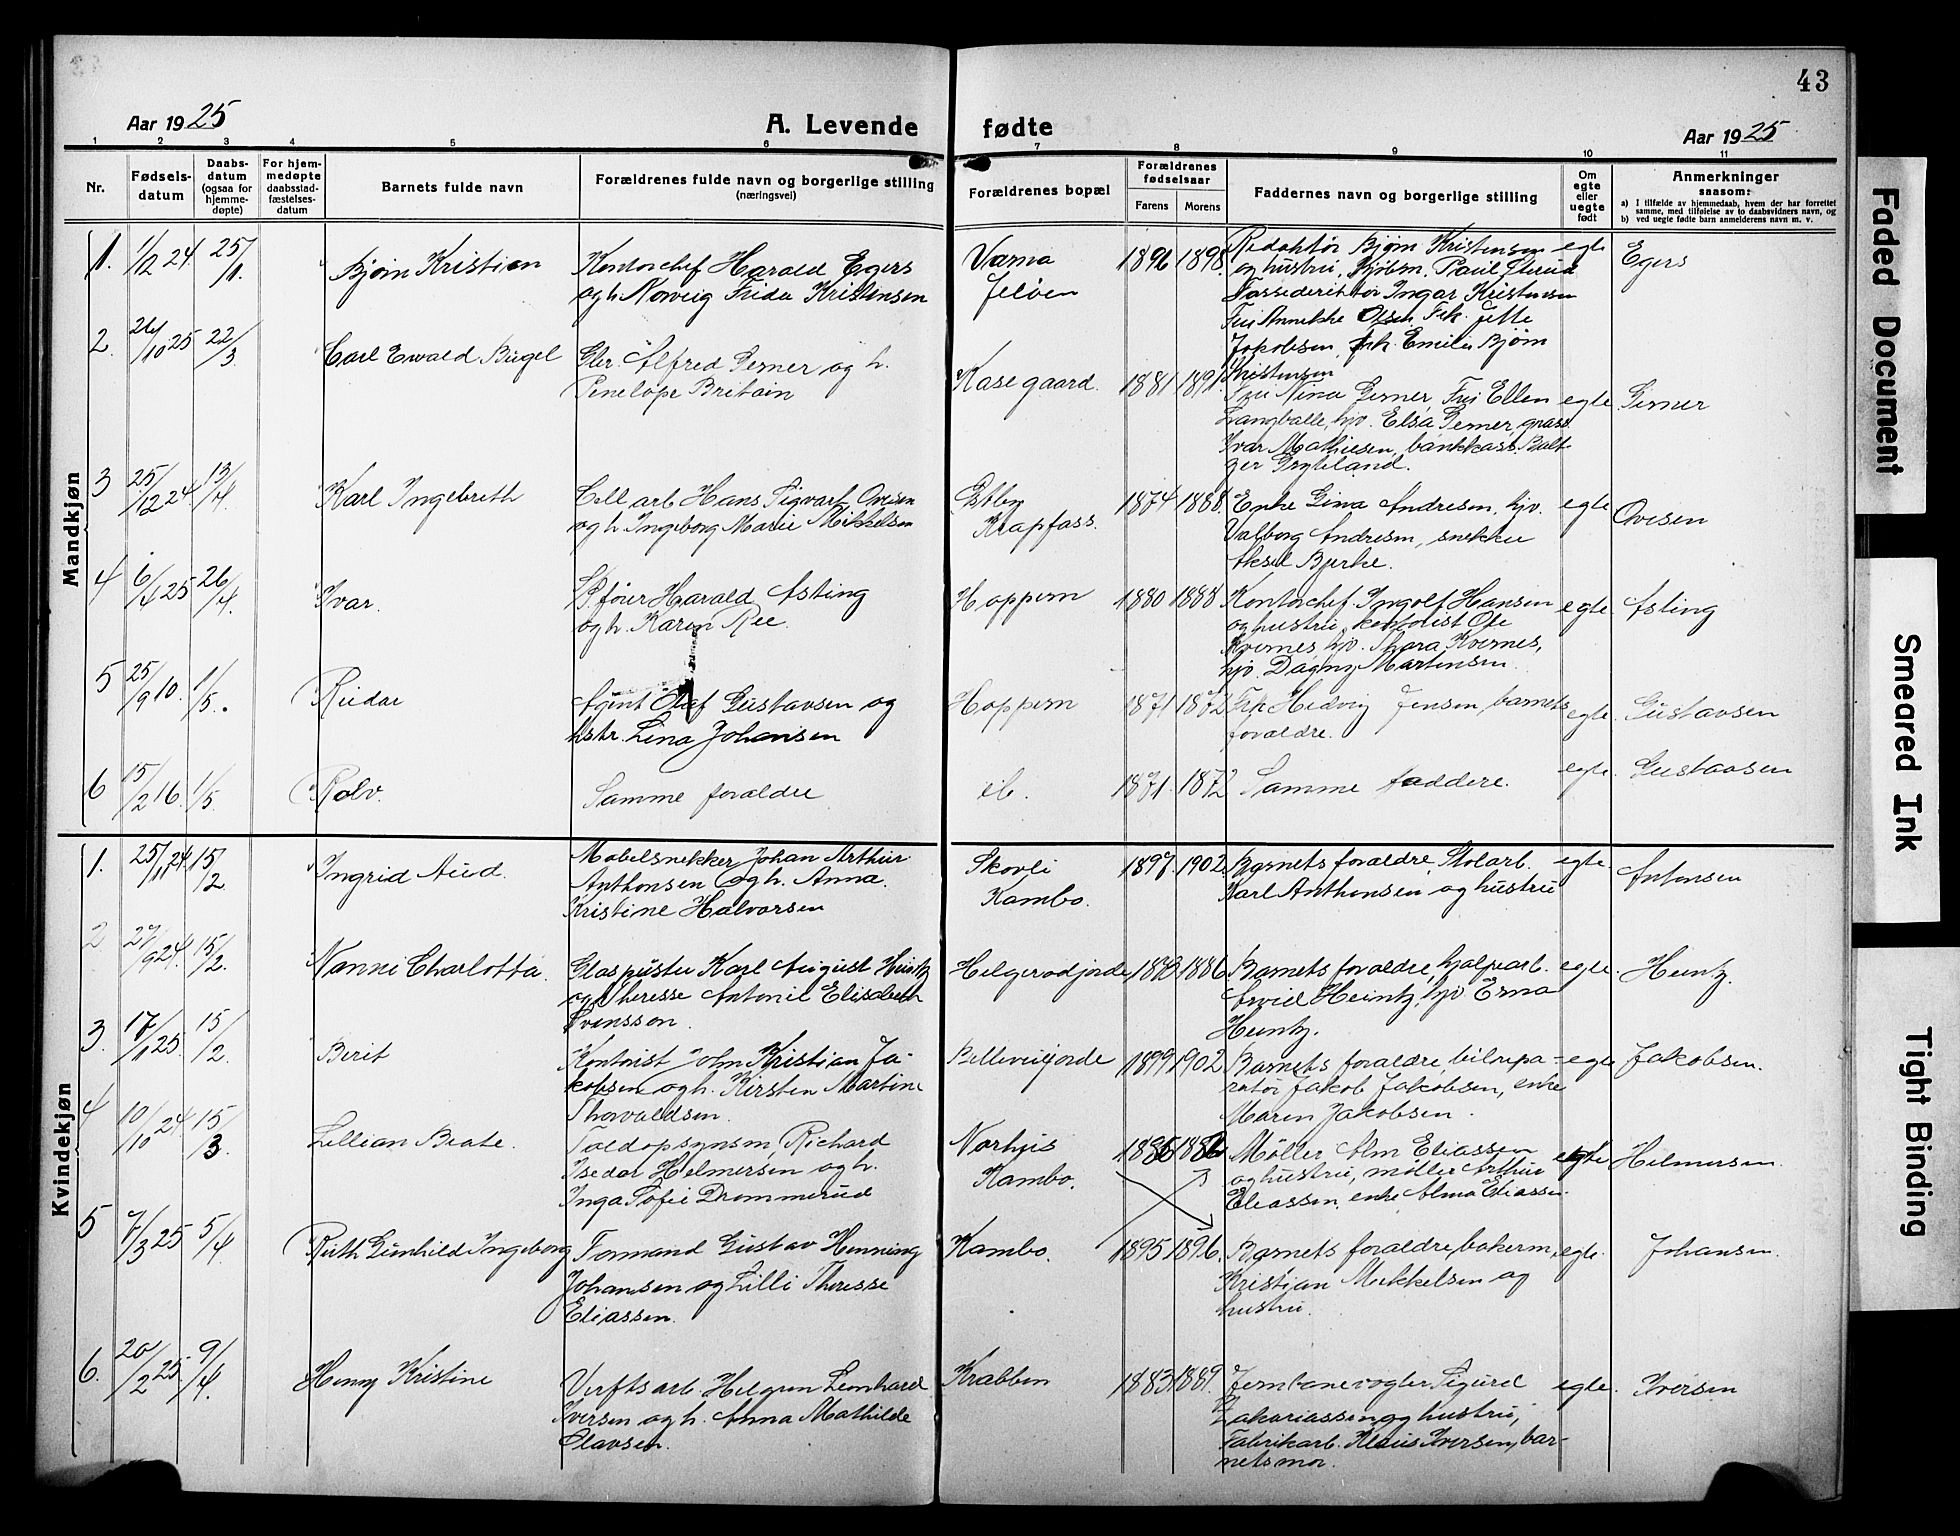 43
Aar 1925
A. Levende fødte
Aar 1925
1 2 3 4 5 6 7 8 9 10 11
Nr.
Fødsels-
datum
Daabs-
datum
(ogsaa for
hjemme-
døpte)
For hjem-
medøpte
daabsstad-
fæstelses-
datum
Barnets fulde navn
Forældrenes fulde navn og borgerlige stilling
(næringsvei)
Forældrenes bopæl
Forældrenes
fødselsaar
Farens Morens
Faddernes navn og borgerlige stilling
Om
egte
eller
uegte
født
Anmerkninger
saasom:
a) I tilfælde av hjemmedaab, hvem der har forrettet
samme, med tilføielse av to daabsvidners navn, og
b) ved uegte fødte barn anmelderens navn m. v.
Mandkjøn
1. 1/12 24. 25/1. Bjørn Kristian
Kontorchef Harald Egers
og h. Norveig Frida Kristensen
Vama
Jeløen
1896 1898.
Redaktør Bjørn Kristensen
og hustru, Paul
Ingar Kristensen
Fru Annekke Olsen Frk. Jette
Jakobsen, frk. Emilie Bjørn
Kristensen
egte Egers
2. 26/10 25 22/3. Carl Ewald Bugel
Gbr. Alfred Gerner og h.
Penelope Britain
Kasegaard. 1881 1891
Fru Nina Gerner, Fru Ellen
Langballe, hjv. Elsa Gerner, gross.
Ivar Mathiesen, bankkass. Balt-
zer Gryteland.
egte Gerner
3 25/12 24. 13/4. Karl Ingebreth
Cell arb Hans Sigvart Ovesen
og h. Ingeborg Marie Mikkelsen
Østby
Krapfoss.
1874 1888.
Enke Gina Andresen, hjv.
Valborg Andresen, snekker
Aksel Bjerke.
egte Ovesen
4 6/4 25 26/4. Ivar.
Skr. Harald Asting
og h. Karen Ree.
Hoppern 1880 1888
Kontorchef Ingolf Hansen
og hustru, kontorist Ole
Kvernes, hjv. Thora Kvernes,
hjv. Dagny Martinsen
egte Asting
5 25/9 10. 1/5. Reidar
Agent Olaf Gustavsen og
hstr. Lina Johansen
Hoppern 1871 1872
Frk Hedvig Jensen, barnets
forældre.
egte. Gustavsen
6 15/2 16. 1/5. Rolv.
Samme forældre
ib. 1871. 1872
Samme faddere.
egte. Gustavsen
Kvindekjøn
1. 25/11 24. 15/2. Ingrid Aud.
Møbelsnekker Johan Arthur
Anthonsen og h. Anna
Kristine Halvorsen
Skovli
Kambo.
1897. 1902.
Barnets forældre, Stolarb.
Karl Anthonsen og hustru
egte. Antonsen
2 27/9 24. 15/2. Nanni Charlotta.
Glaspuster Karl August Heintz
og Theresse Antonie Elisabeth
Svensson.
Helgerødjorde 1873 1886.
Barnets forældre, hjælpearb.
Arvid Heintz, hjv Erna
Heintz.
egte. Heintz.
3. 17/1 25. 15/2. Berit
Kontorist John Kristian Ja-
kobsen og h. Kirsten Martine
Thorvaldsen.
Bellevuejorde 1899 1902
Barnets forældre, bilrepa-
ratør Jakob Jakobsen, enke
Maren Jakobsen.
egte Jakobsen.
4 10/10 24 15/3. Lillian Beate.
Toldopsynsm. Richard
Isedor Helmersen og h.
Inga Sofie Drømmerud
Norhus
Kambo.
1886 1886
Møller Alm Eliassen
og hustru, møller Arthur
Eliassen, enke Alma Eliassen.
egte Helmersen.
5 7/3 25 5/4. Ruth Gunhild Ingeborg
Formand Gustav Henning
Johansen og Lilli Theresse
Eliassen.
Kambo. 1895 1896.
Barnets forældre, bakerm.
Kristian Mikkelsen og
hustru.
egte. Johansen.
6. 20/2 25. 9/4. Henny Kristine
Verftsarb. Helgren Leonhard
Iversen og h. Anna Mathilde
Olavsen.
Krabben 1883. 1889.
Jernbanevogter Sigurd
Zakariassen og hustru,
Fabrikarb. Klaus Iversen, bar-
nets mor.
egte. Iversen
Faded Document
Smeared Ink
Tight Binding